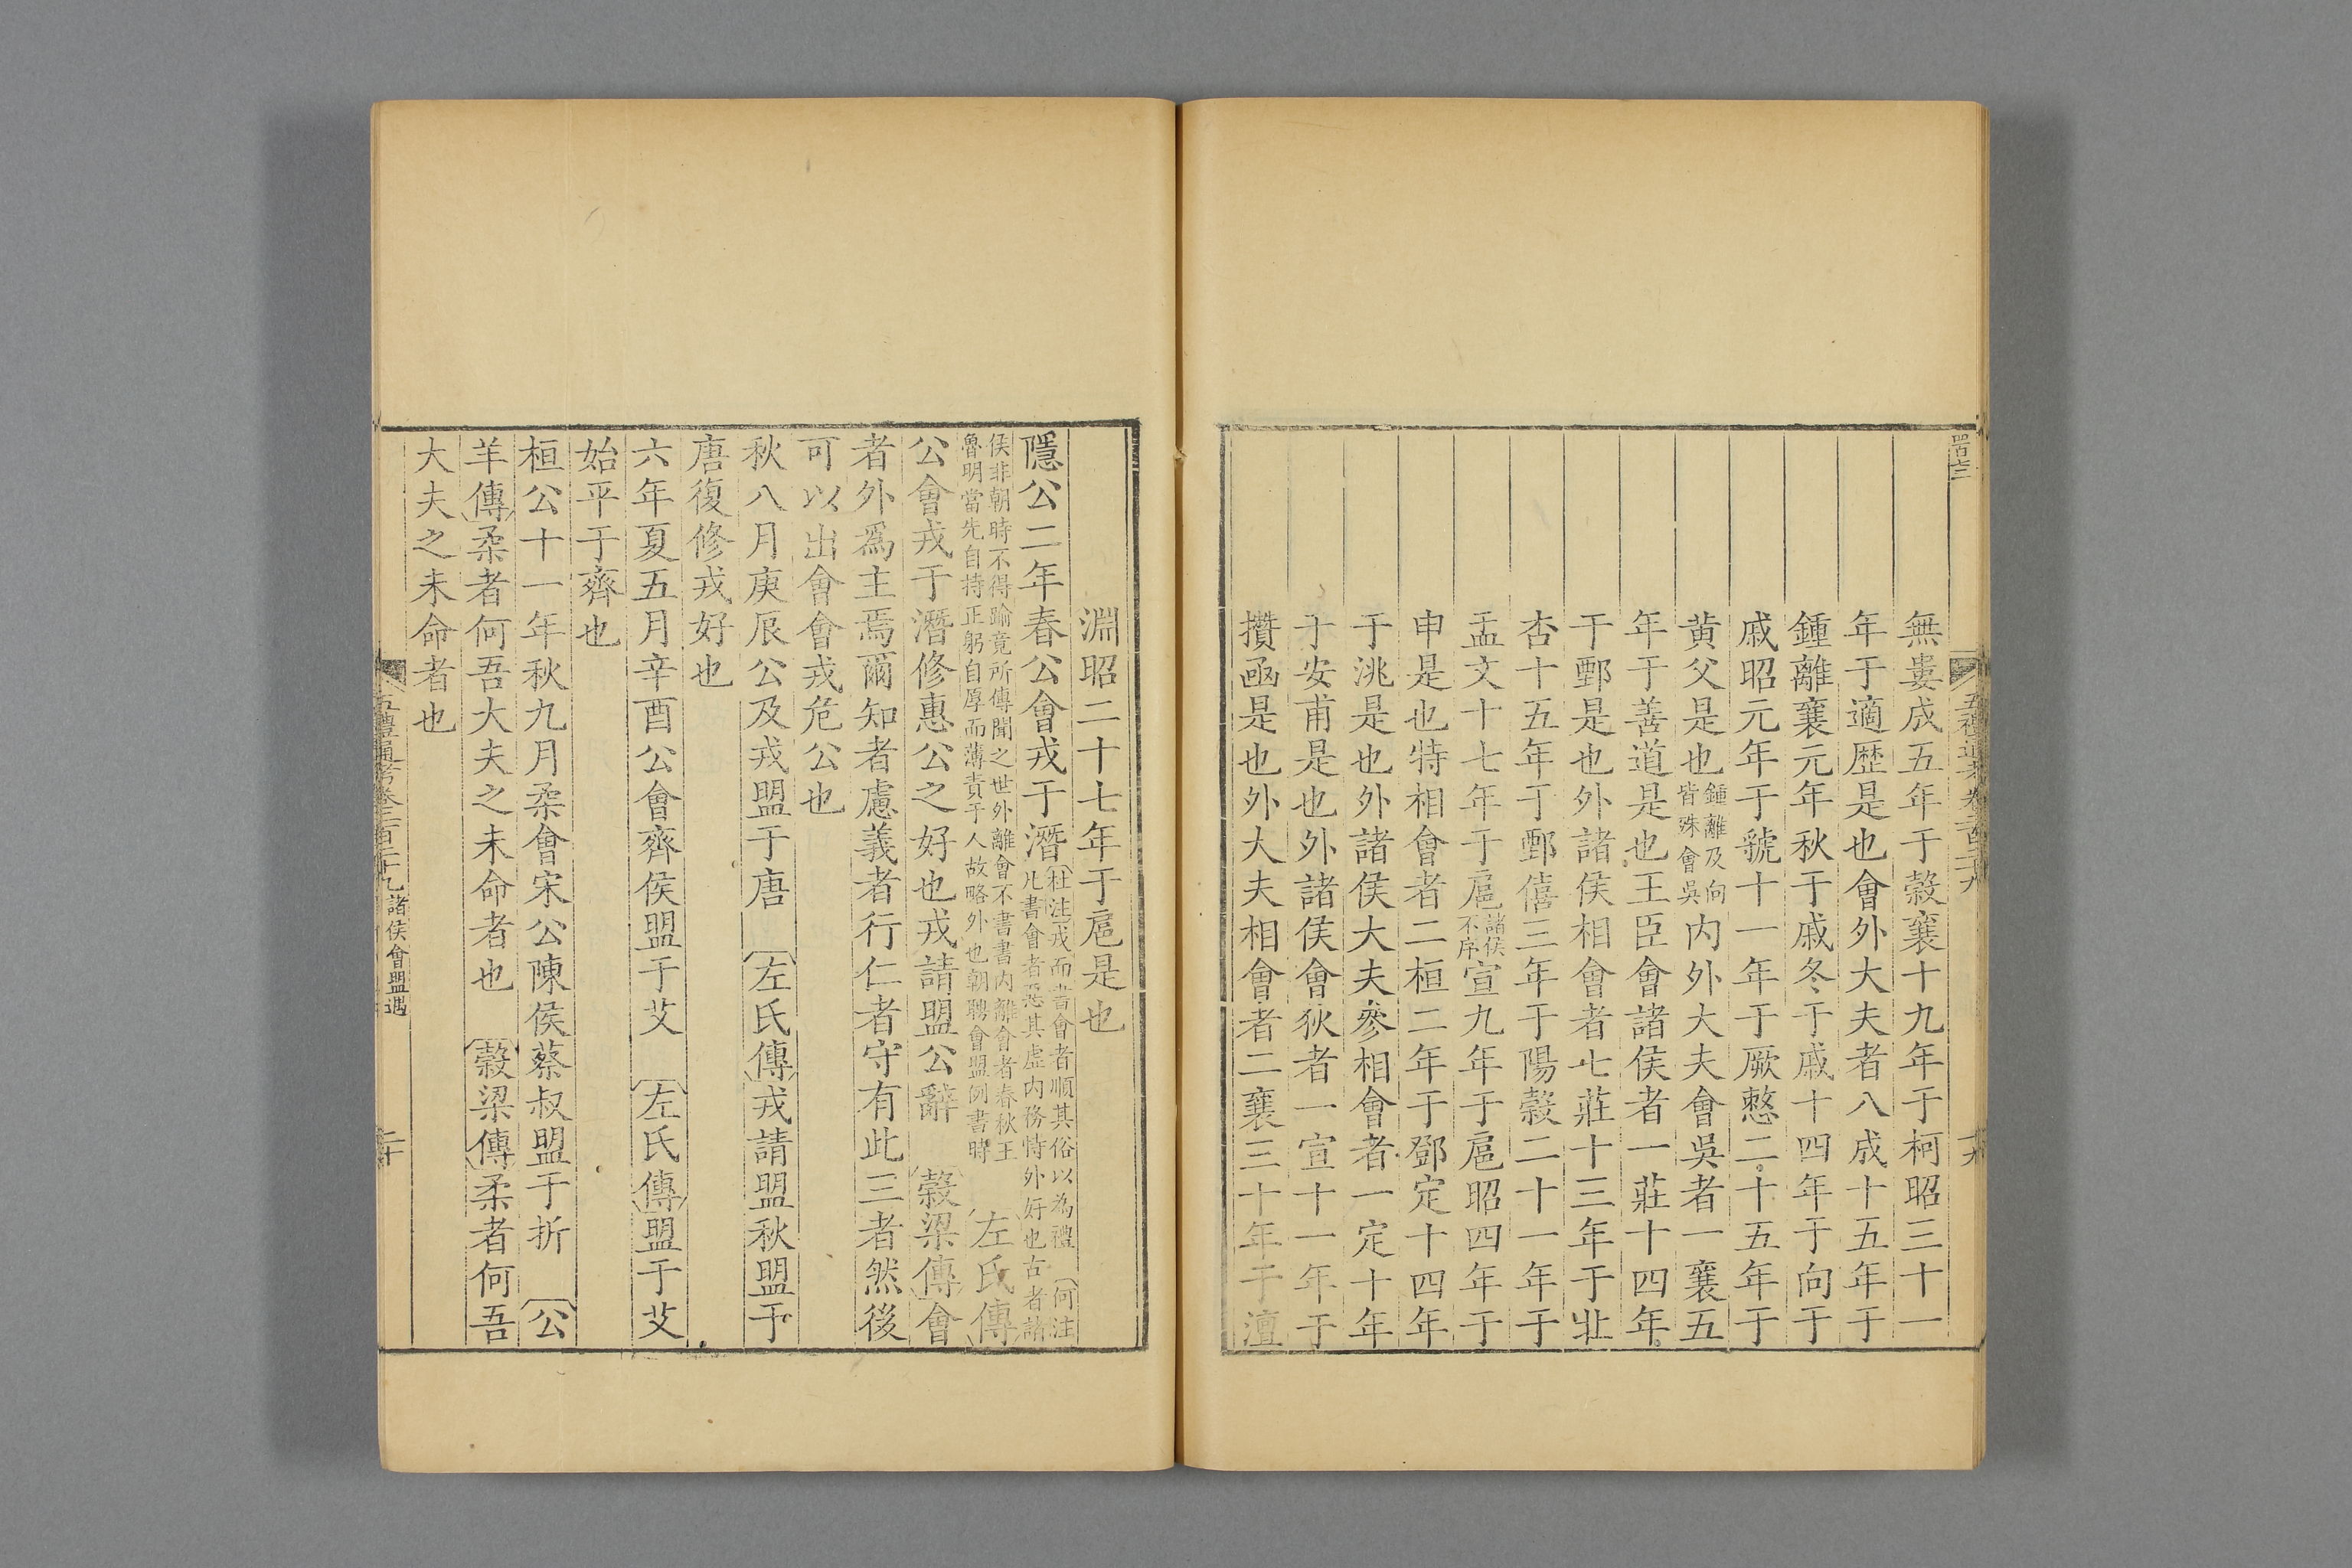 無婁成五年于穀襄十九年于柯昭三十一
年于適歷是也會外大夫者八成十五年于
鍾離襄元年秋于戚冬于戚十四年于向于
戚昭元年于虢十一年于厥憖二十五年于
黃父是也鍾離及向皆殊會吳內外大夫會吳者一襄五
年于善道是也王臣會諸侯者一莊十四年
于鄄是也外諸侯相會者七莊十三年于北
杏十五年于鄄僖三年于陽穀二十一年于
盂文十七年于扈諸侯不序宣九年于扈昭四年于
申是也特相會者二桓二年于鄧定十四年
于洮是也外諸侯大夫參相會者一定十年
于安甫是也外諸侯會狄者一宣十一年于
攢函是也外大夫相會者二襄三十年于澶
淵昭二十七年于扈是也
隱公二年春公會戎于潛杜注戎而書會者順其俗以為禮 何注
凡書會者惡其虛內務恃外好也古者諸
侯非朝時不得踰竟所傳聞之世外離會不書書內離會者春秋王
魯明當先自持正躬自厚而薄責于人故略外也朝聘會盟例書時 左氏傳
公會戎于潛修惠公之好也戎請盟公辭 穀梁傳會
者外為主焉爾知者慮義者行仁者守有此三者然後
可以出會會戎危公也
秋八月庚辰公及戎盟于唐 左氏傳戎請盟秋盟于
唐復修戎好也
六年夏五月辛酉公會齊侯盟于艾 左氏傳盟于艾
始平于齊也
桓公十一年秋九月柔會宋公陳侯蔡叔盟于折 公
羊傳柔者何吾大夫之未命者也 穀梁傳柔者何吾
大夫之未命者也
五禮通考卷二百二十九 諸侯會盟遇 二十